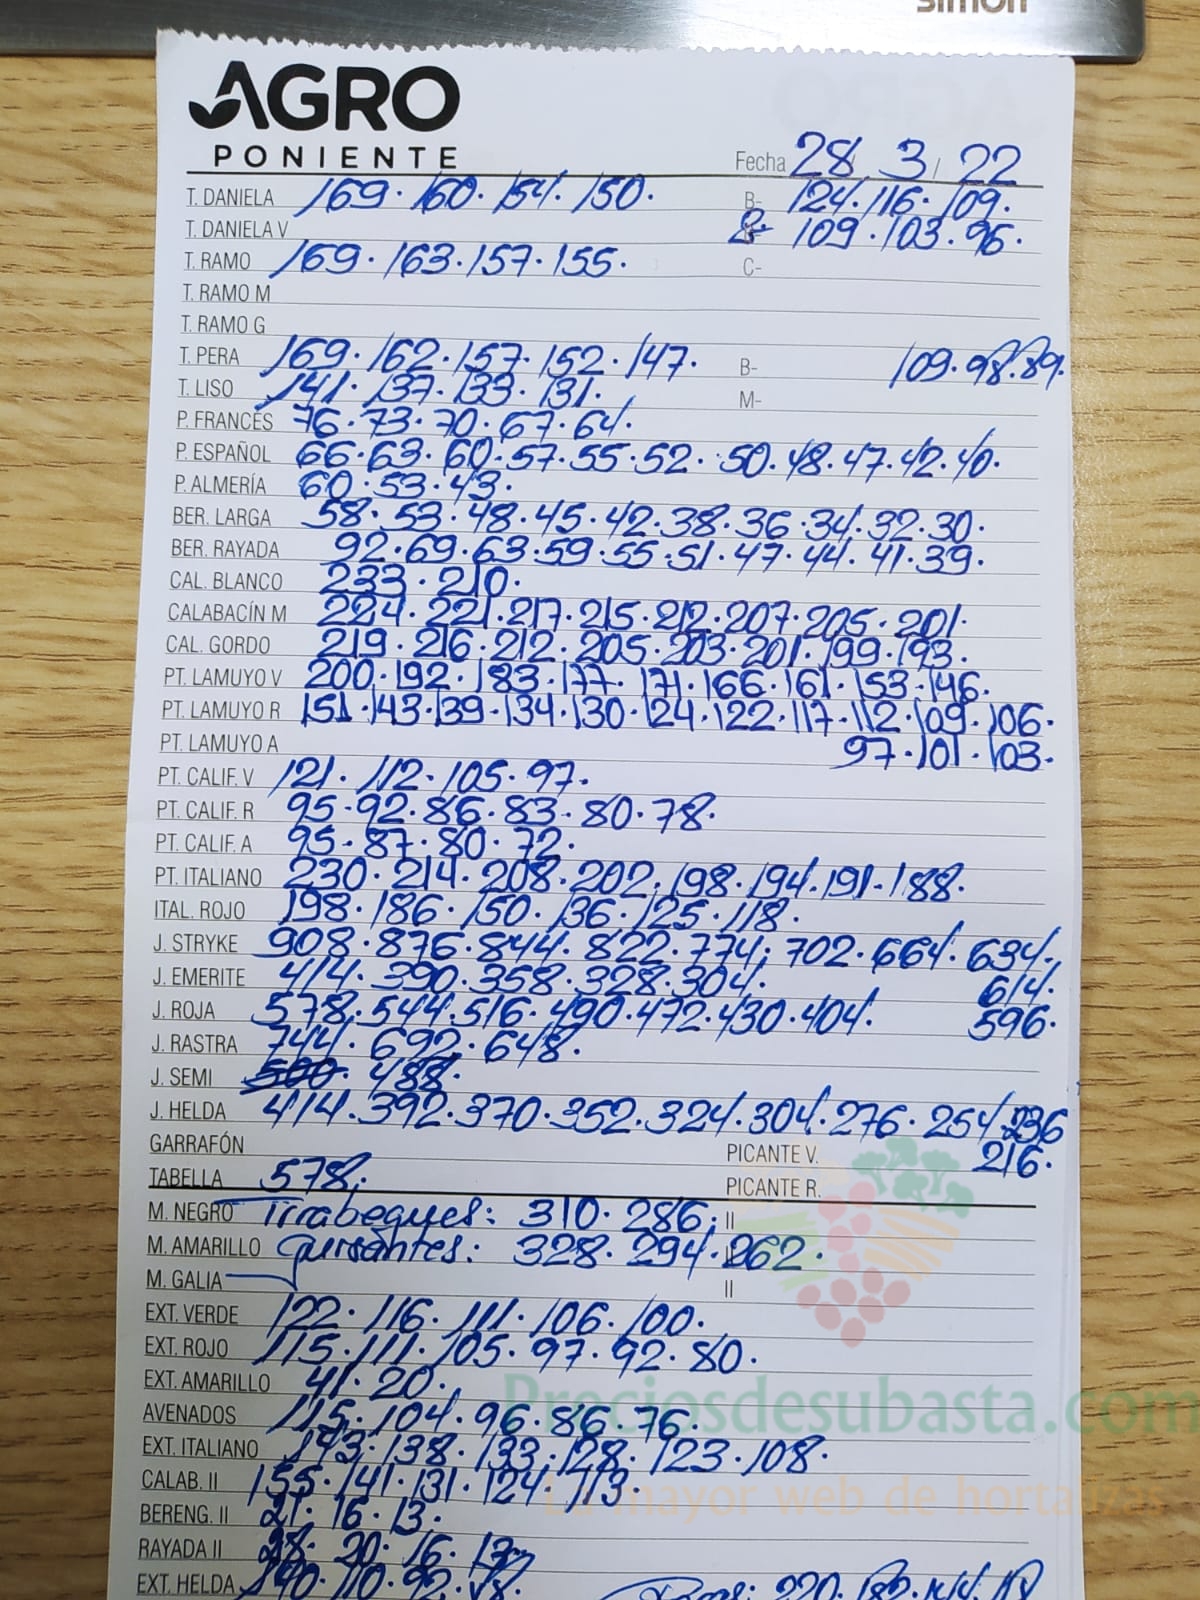 simon
AGRO
PONIENTE
Fecha 28 / 3 / 22
T. DANIELA 169 · 160 · 154 · 150 · B- 124 · 116 · 109 ·
T. DANIELA V 109 · 103 · 96 ·
T. RAMO 169 · 163 · 157 · 155 · C-
T. RAMO M
T. RAMO G
T. PERA 169 · 162 · 157 · 152 · 147 · B- 109 · 98 · 89 ·
T. LISO 141 · 137 · 133 · 131 · M-
P. FRANCÉS 76 · 73 · 70 · 67 · 64 ·
P. ESPAÑOL 66 · 63 · 60 · 57 · 55 · 52 · 50 · 48 · 47 · 42 · 40 ·
P. ALMERÍA 60 · 53 · 43 ·
BER. LARGA 58 · 53 · 48 · 45 · 42 · 38 · 36 · 34 · 32 · 30 ·
BER. RAYADA 92 · 69 · 63 · 59 · 55 · 51 · 47 · 44 · 41 · 39 ·
CAL. BLANCO 233 · 210 ·
CALABACÍN M 224 · 221 · 217 · 215 · 212 · 207 · 205 · 201 ·
CAL. GORDO 219 · 216 · 212 · 205 · 203 · 201 · 199 · 193 ·
PT. LAMUYO V 200 · 192 · 183 · 177 · 171 · 166 · 161 · 153 · 146 ·
PT. LAMUYO R 151 · 143 · 139 · 134 · 130 · 124 · 122 · 117 · 112 · 109 · 106 ·
PT. LAMUYO A 97 · 101 · 103 ·
PT. CALIF. V 121 · 112 · 105 · 97 ·
PT. CALIF. R 95 · 92 · 86 · 83 · 80 · 78 ·
PT. CALIF. A 95 · 87 · 80 · 72 ·
PT. ITALIANO 230 · 214 · 208 · 202 · 198 · 194 · 191 · 188 ·
ITAL. ROJO 198 · 186 · 150 · 136 · 125 · 118 ·
J. STRYKE 908 · 876 · 844 · 822 · 774 · 702 · 664 · 634 ·
J. EMERITE 414 · 390 · 358 · 328 · 304 · 614 ·
J. ROJA 578 · 544 · 516 · 490 · 472 · 430 · 404 · 596 ·
J. RASTRA 744 · 692 · 648 ·
J. SEMI 500 · 488 ·
J. HELDA 414 · 392 · 370 · 352 · 324 · 304 · 276 · 254 · 236
GARRAFÓN PICANTE V. 216 ·
TABELLA 578 · PICANTE R.
M. NEGRO Tirabeques: 310 · 286 · II
M. AMARILLO Guisantes: 328 · 294 · 262 ·
M. GALIA II
EXT. VERDE 122 · 116 · 111 · 106 · 100 ·
EXT. ROJO 115 · 111 · 105 · 97 · 92 · 80 ·
EXT. AMARILLO 41 · 20 ·
Preciosdesubasta.com
AVENADOS 115 · 104 · 96 · 86 · 76 ·
EXT. ITALIANO 143 · 138 · 133 · 128 · 123 · 108 ·
CALAB. II 155 · 141 · 131 · 124 · 113 ·
La mayor web de hortalizas
BERENG. II 21 · 16 · 13 ·
RAYADA II 28 · 20 · 16 · 13
EXT. HELDA 140 · 110 · 92 · 220 ·